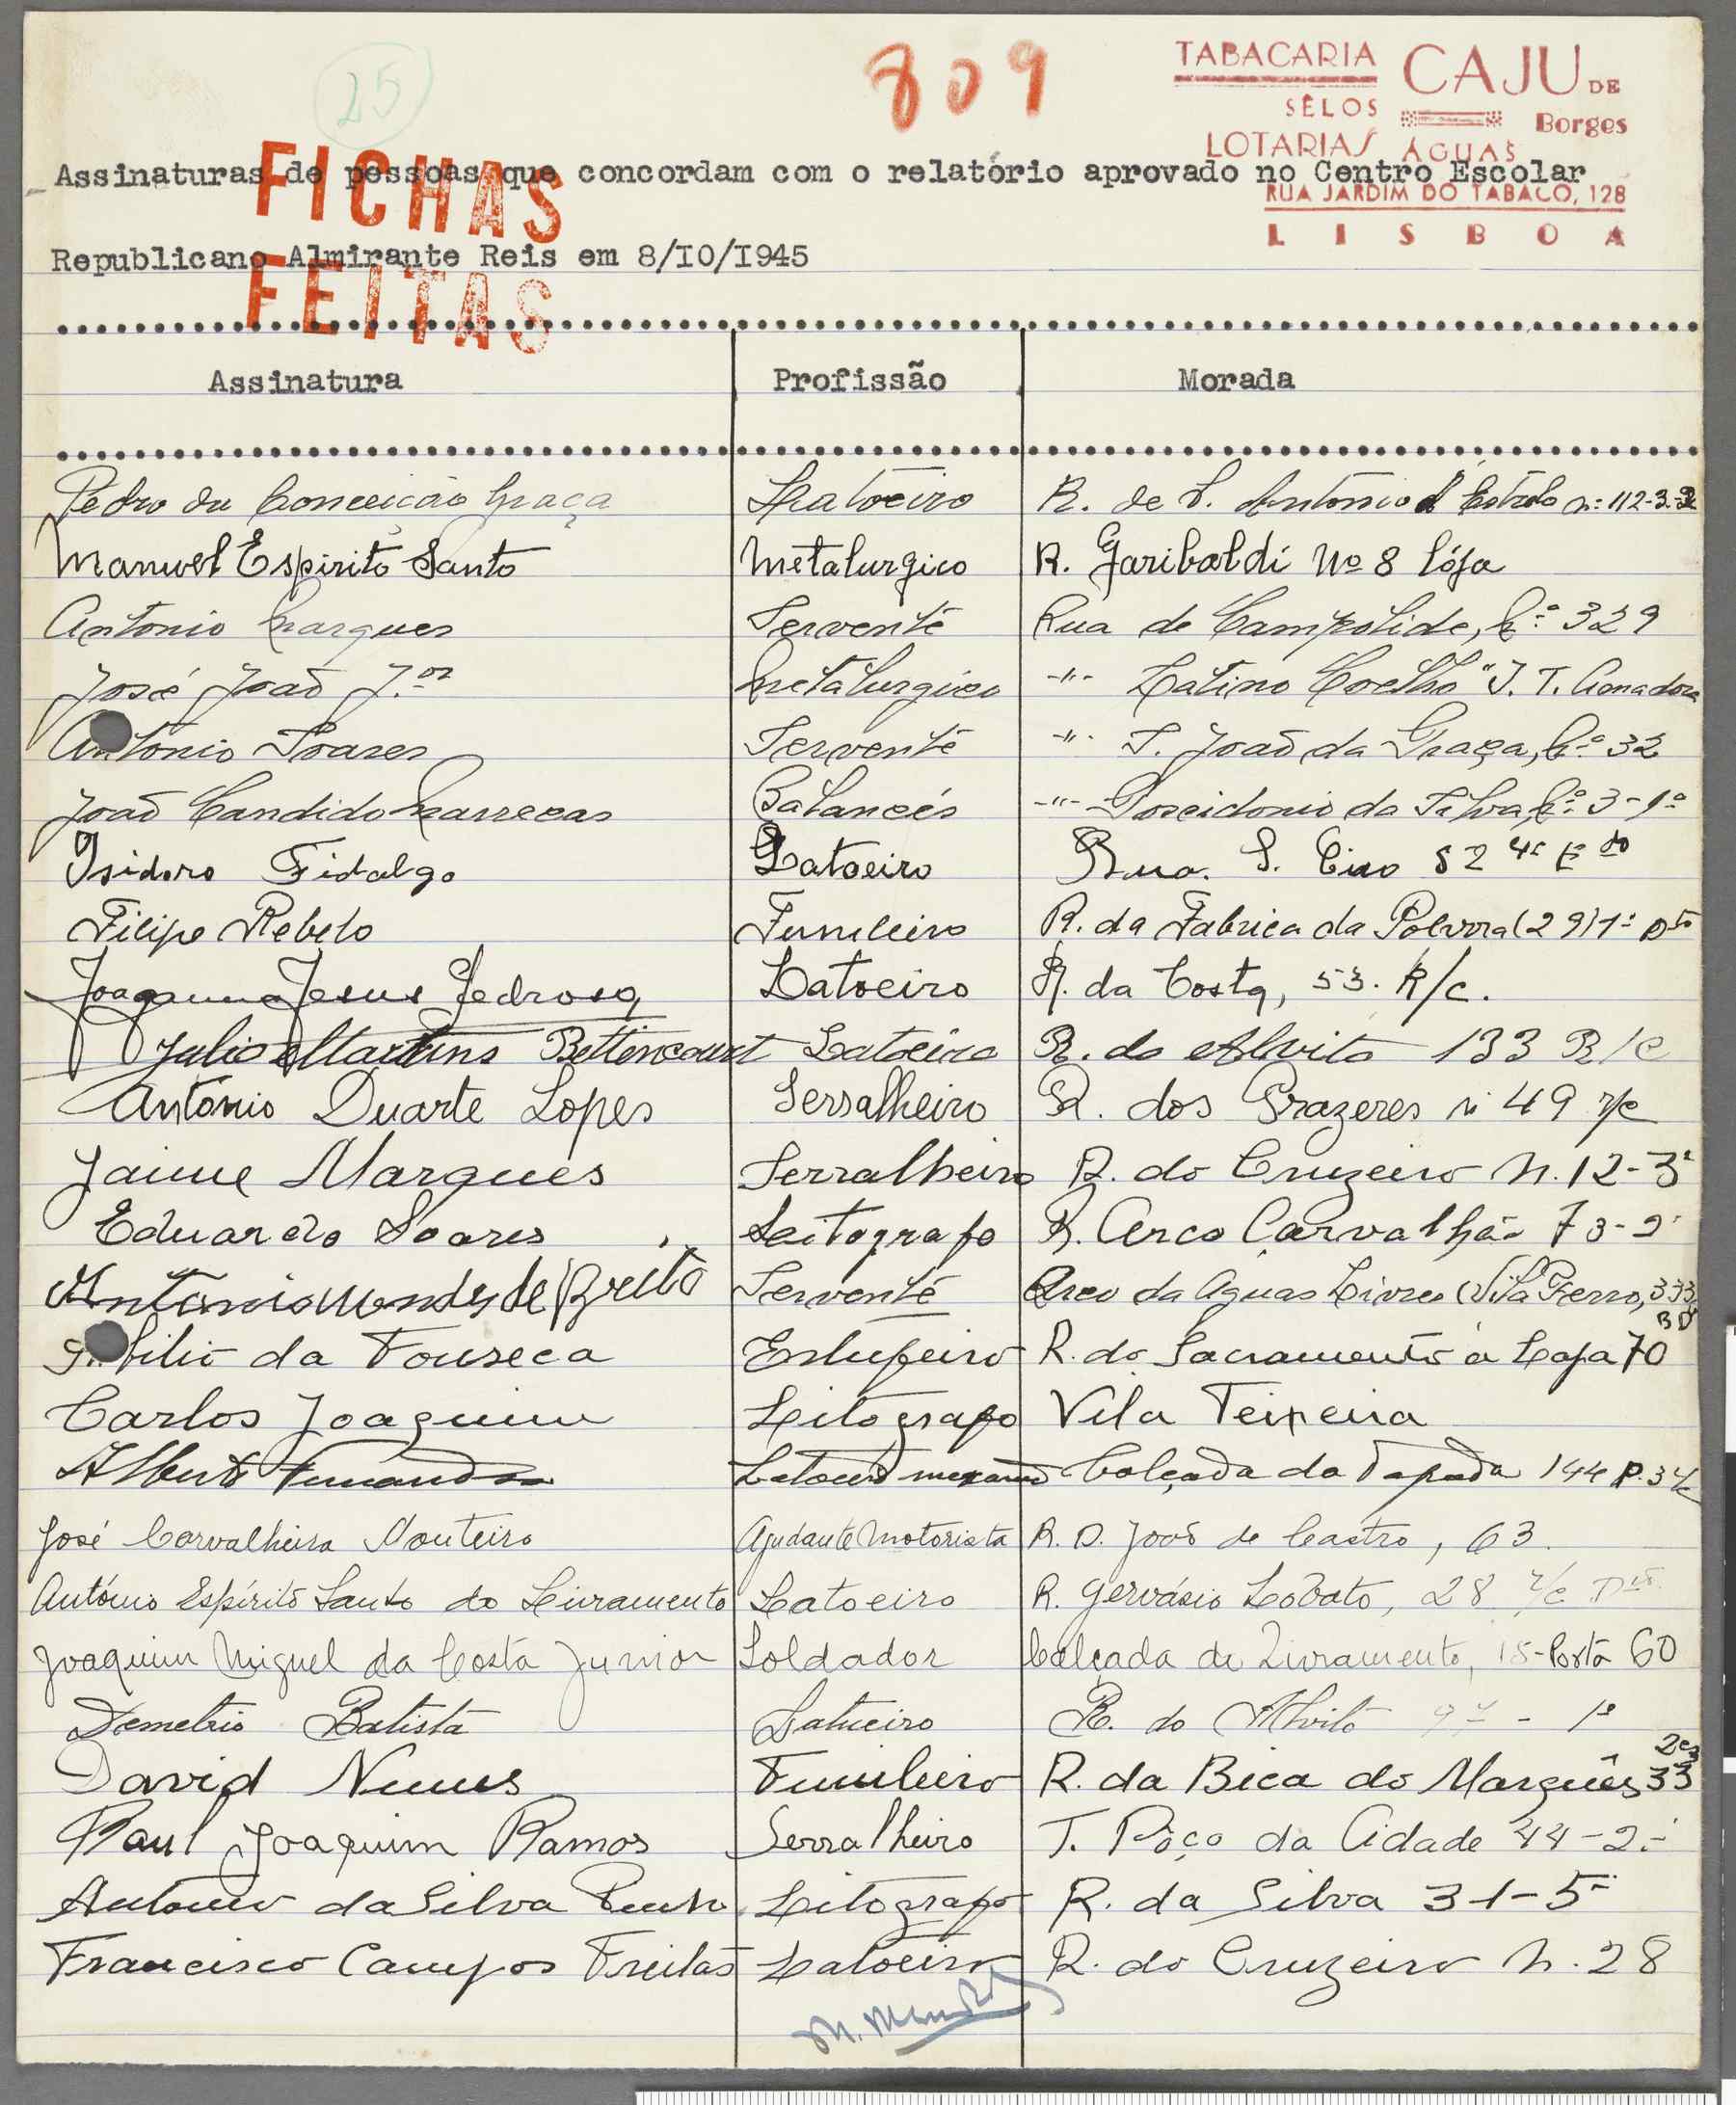 25
809
TABACARIA CAJU DE
SÊLOS Borges
LOTARIAS ÁGUAS
RUA JARDIM DO TABACO, 128
LISBOA
Assinaturas de pessoas que concordam com o relatório aprovado no Centro Escolar
Republicano Almirante Reis em 8/IO/I945
FICHAS
FEITAS
Assinatura Profissão Morada
Pedro da Conceição Graça Latoeiro R. de S. António á Estrela nº 112-3º
Manuel Espirito Santo Metalurgico R. Garibaldi Nº 8 lója
Antonio Marques Servente Rua de Campolide, Nº 329
José João J.or Metalurgico -"- Latino Coelho J. T. Amadora
Antonio Soares Servente -"- S. João da Graça, Nº 32
João Candido Marrecas Balancés -"- Poseidonio da Silva, Nº 3-1º
Isidoro Fidalgo Latoeiro Rua. S. Ciro 52 4º Edo
Filipe Rebelo Funileiro R. da Fabrica da Polvora (29) 1º Dto
Joaquim Jesus Pedrosa Latoeiro R. da Costa, 53. R/c.
Julio Martins Bettencourt Latoeiro R. do Alvito 133 R/c
António Duarte Lopes Serralheiro R. dos Prazeres nº 49 r/c
Jaime Marques Serralheiro R. do Cruzeiro N. 12-3º
Eduardo Soares Leitografo R. Arco Carvalhão 73-2º
Antonio Mendes de Brito Servente Arco da Aguas Livres (Vila Ferro, 333
da Fonseca Estufeiro R. do Sacramento á Lapa 70
Carlos Joaquim Leitografo Vila Teixeira
Alberto Fernandes Latoeiro Calçada da Tapada 144 P. 3
José Carvalheira Monteiro Ajudante Motorista R. D. João de Castro, 63.
António Espírito Santo do Livramento Latoeiro R. Gervásio Lobato, 28 r/c Dto.
Joaquim Miguel da Costa Junior Soldador Calçada do Livramento, 15-Porta 60
Demetrio Batista Latueiro R. do Alvito - 1º
David Nunes Funileiro R. da Bica do Marquês 33
Raul Joaquim Ramos Serralheiro T. Pôço da Cidade 44-2º
Antonio da Silva Leitografo R. da Silva 31-5º
Francisco Campos Freitas Latoeiro R. do Cruzeiro N. 28